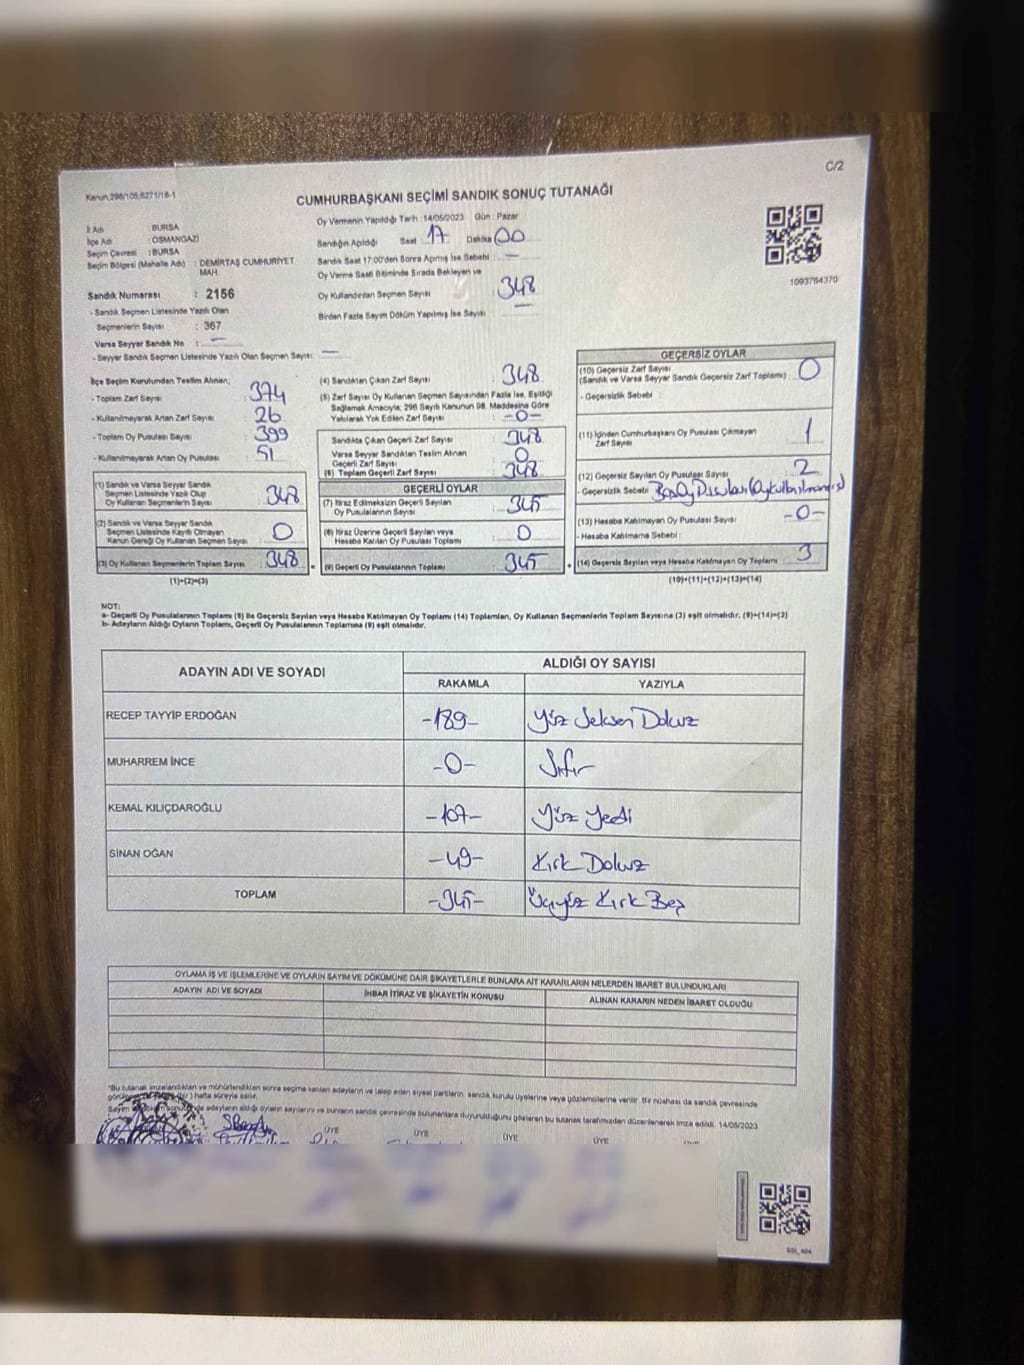 C/2
Kanun,298/105,6271/18-1
CUMHURBAŞKANI SEÇİMİ SANDIK SONUÇ TUTANAĞI
İl Adı : BURSA
İlçe Adı : OSMANGAZİ
Seçim Çevresi : BURSA
Seçim Bölgesi (Mahalle Adı) : DEMİRTAŞ CUMHURİYET MAH.
Sandık Numarası : 2156
- Sandık Seçmen Listesinde Yazılı Olan
Seçmenlerin Sayısı : 367
Varsa Seyyar Sandık No : —
- Seyyar Sandık Seçmen Listesinde Yazılı Olan Seçmen Sayısı: —
Oy Vermenin Yapıldığı Tarih :14/05/2023 Gün : Pazar
Sandığın Açıldığı Saat 17 Dakika 00
Sandık Saat 17:00'den Sonra Açılmış İse Sebebi : —
Oy Verme Saati Bitiminde Sırada Bekleyen ve
Oy Kullandırılan Seçmen Sayısı : 348
Birden Fazla Sayım Döküm Yapılmış İse Sayısı : —
1093764370
İlçe Seçim Kurulundan Teslim Alınan;
- Toplam Zarf Sayısı : 374
- Kullanılmayarak Artan Zarf Sayısı : 26
- Toplam Oy Pusulası Sayısı : 399
- Kullanılmayarak Artan Oy Pusulası : 51
(1) Sandık ve Varsa Seyyar Sandık
Seçmen Listesinde Yazılı Olup
Oy Kullanan Seçmenlerin Sayısı : 348
(2) Sandık ve Varsa Seyyar Sandık
Seçmen Listesinde Kayıtlı Olmayan
Kanun Gereği Oy Kullanan Seçmen Sayısı : 0
(3) Oy Kullanan Seçmenlerin Toplam Sayısı : 348
(1)+(2)=(3)
(4) Sandıktan Çıkan Zarf Sayısı : 348
(5) Zarf Sayısı Oy Kullanan Seçmen Sayısından Fazla İse, Eşitliği
Sağlamak Amacıyla; 298 Sayılı Kanunun 98. Maddesine Göre
Yakılarak Yok Edilen Zarf Sayısı : -0-
Sandıkta Çıkan Geçerli Zarf Sayısı : 348
Varsa Seyyar Sandıktan Teslim Alınan
Geçerli Zarf Sayısı : 0
(6) Toplam Geçerli Zarf Sayısı : 348
GEÇERLİ OYLAR
(7) İtiraz Edilmeksizin Geçerli Sayılan
Oy Pusulalarının Sayısı : 345
(8) İtiraz Üzerine Geçerli Sayılan veya
Hesaba Katılan Oy Pusulası Toplamı : 0
(9) Geçerli Oy Pusulalarının Toplamı : 345
GEÇERSİZ OYLAR
(10) Geçersiz Zarf Sayısı
(Sandık ve Varsa Seyyar Sandık Geçersiz Zarf Toplamı) : 0
- Geçersizlik Sebebi :
(11) İçinden Cumhurbaşkanı Oy Pusulası Çıkmayan
Zarf Sayısı : 1
(12) Geçersiz Sayılan Oy Pusulası Sayısı : 2
- Geçersizlik Sebebi : Boş Oy Pusulası
(13) Hesaba Katılmayan Oy Pusulası Sayısı : -0-
- Hesaba Katılmama Sebebi :
(14) Geçersiz Sayılan veya Hesaba Katılmayan Oy Toplamı : 3
(10)+(11)+(12)+(13)=(14)
NOT:
a- Geçerli Oy Pusulalarının Toplamı (9) ile Geçersiz Sayılan veya Hesaba Katılmayan Oy Toplamı (14) Toplamları, Oy Kullanan Seçmenlerin Toplam Sayısına (3) eşit olmalıdır. (9)+(14)=(3)
b- Adayların Aldığı Oyların Toplamı, Geçerli Oy Pusulalarının Toplamına (9) eşit olmalıdır.
ADAYIN ADI VE SOYADI ALDIĞI OY SAYISI
RAKAMLA YAZIYLA
RECEP TAYYİP ERDOĞAN -189- Yüz Seksen Dokuz
MUHARREM İNCE -0- Sıfır
KEMAL KILIÇDAROĞLU -107- Yüz Yedi
SİNAN OĞAN -49- Kırk Dokuz
TOPLAM -345- Üçyüz Kırk Beş
OYLAMA İŞ VE İŞLEMLERİNE VE OYLARIN SAYIM VE DÖKÜMÜNE DAİR ŞİKAYETLERLE BUNLARA AİT KARARLARIN NELERDEN İBARET BULUNDUKLARI
ADAYIN ADI VE SOYADI İHBAR İTİRAZ VE ŞİKAYETİN KONUSU ALINAN KARARIN NEDEN İBARET OLDUĞU
"Bu tutanak imzalandıktan ve mühürlendikten sonra seçime katılan adayların ve talep eden siyasi partilerin, sandık kurulu üyelerine veya gözlemcilerine verilir. Bir nüshası da sandık çevresinde
(bir) hafta süreyle asılır.
Sayım ve döküm sonucunda adayların aldığı oyların sayılarını ve bunların sandık çevresinde bulunanlara duyurulduğunu gösteren bu tutanak tarafımızdan düzenlenerek imza edildi. 14/05/2023
ÜYE ÜYE ÜYE ÜYE